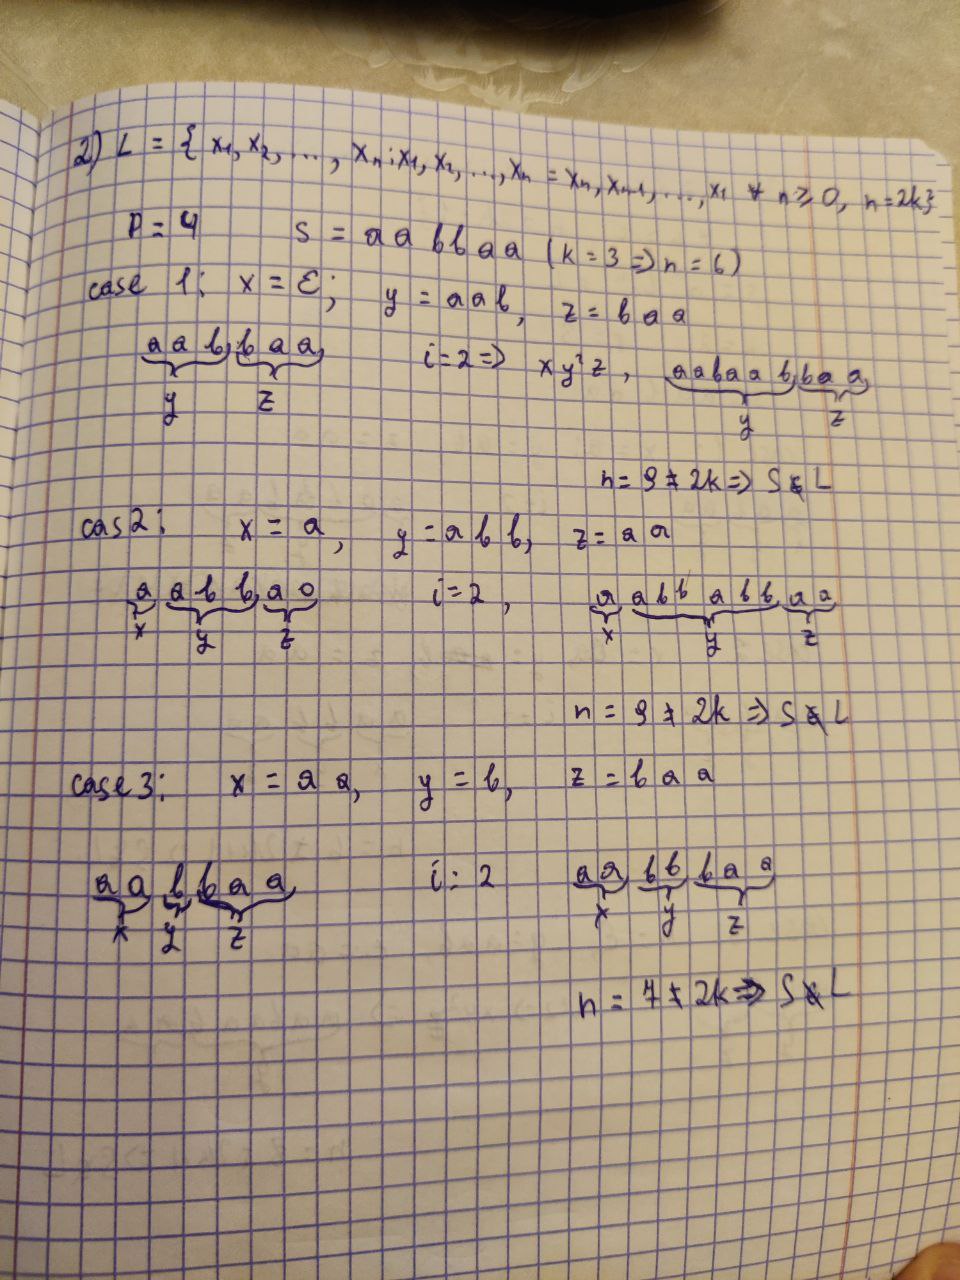 2) L = { x₁, x₂, ..., xₙ : x₁, x₂, ..., xₙ = xₙ, xₙ₋₁, ..., x₁ ∀ n ≥ 0, n = 2k}
P = 4 S = aabbaa (k = 3 => n = 6)
case 1: x = ε; y = aab, z = baa
aab baa i = 2 => xy²z, aabaab baa
y z y z
n = 9 ≠ 2k => S ∉ L
cas 2: x = a, y = abb, z = aa
a abb aa i = 2, a abb abb aa
x y z x y z
n = 9 ≠ 2k => S ∉ L
case 3: x = aa, y = b, z = baa
aa b baa i = 2 aa bb baa
x y z x y z
n = 7 ≠ 2k => S ∉ L